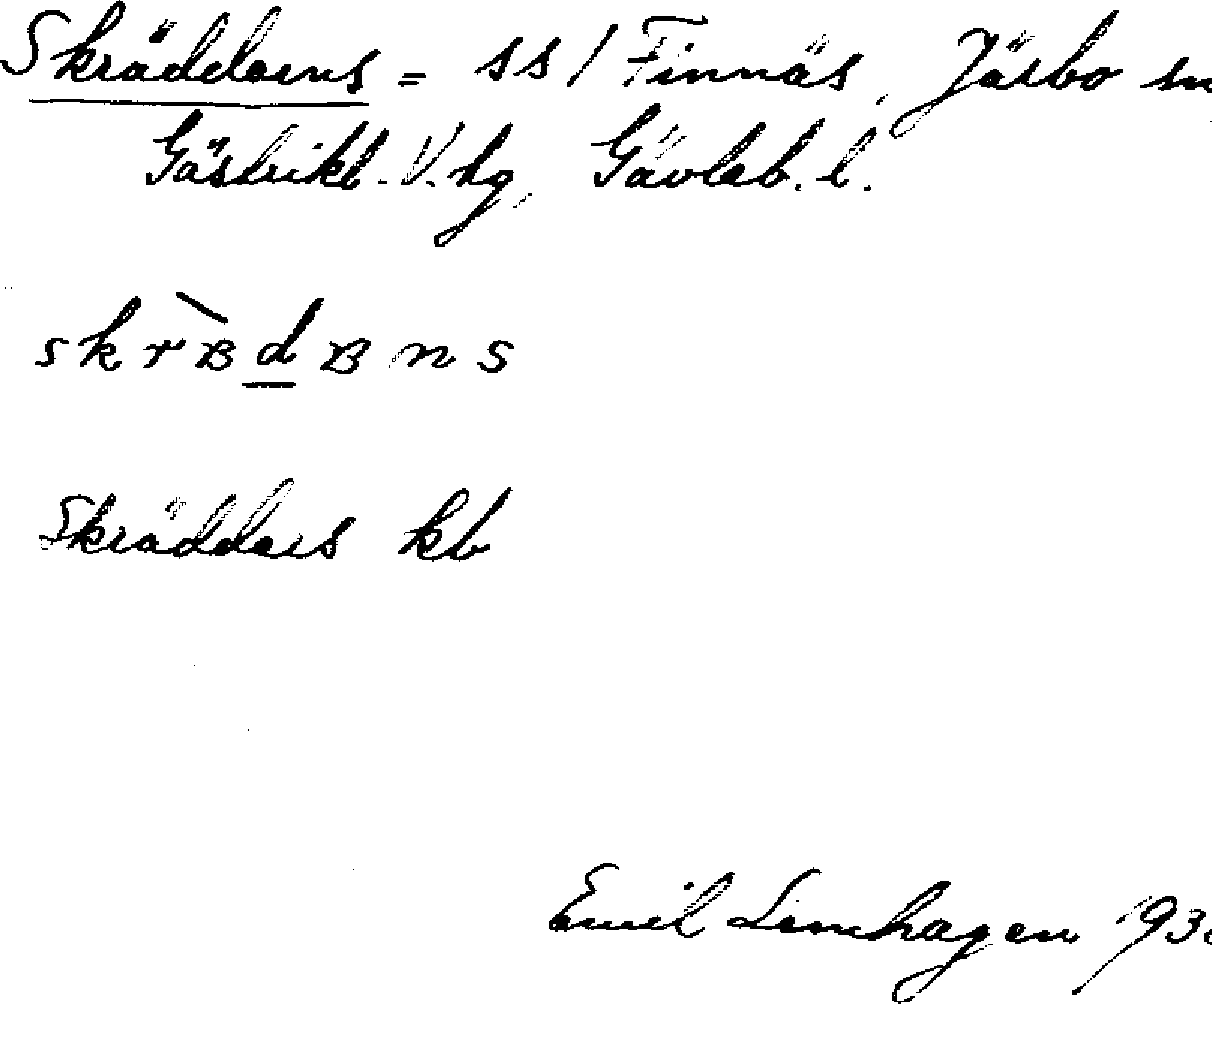 Skräddarns = ss / Finnäs, Järbo sn
Gästrikl. V. hg, Gävleb. l.
skrʙ̀dʙns
Skräddars kb
Emil Lennhagen 193